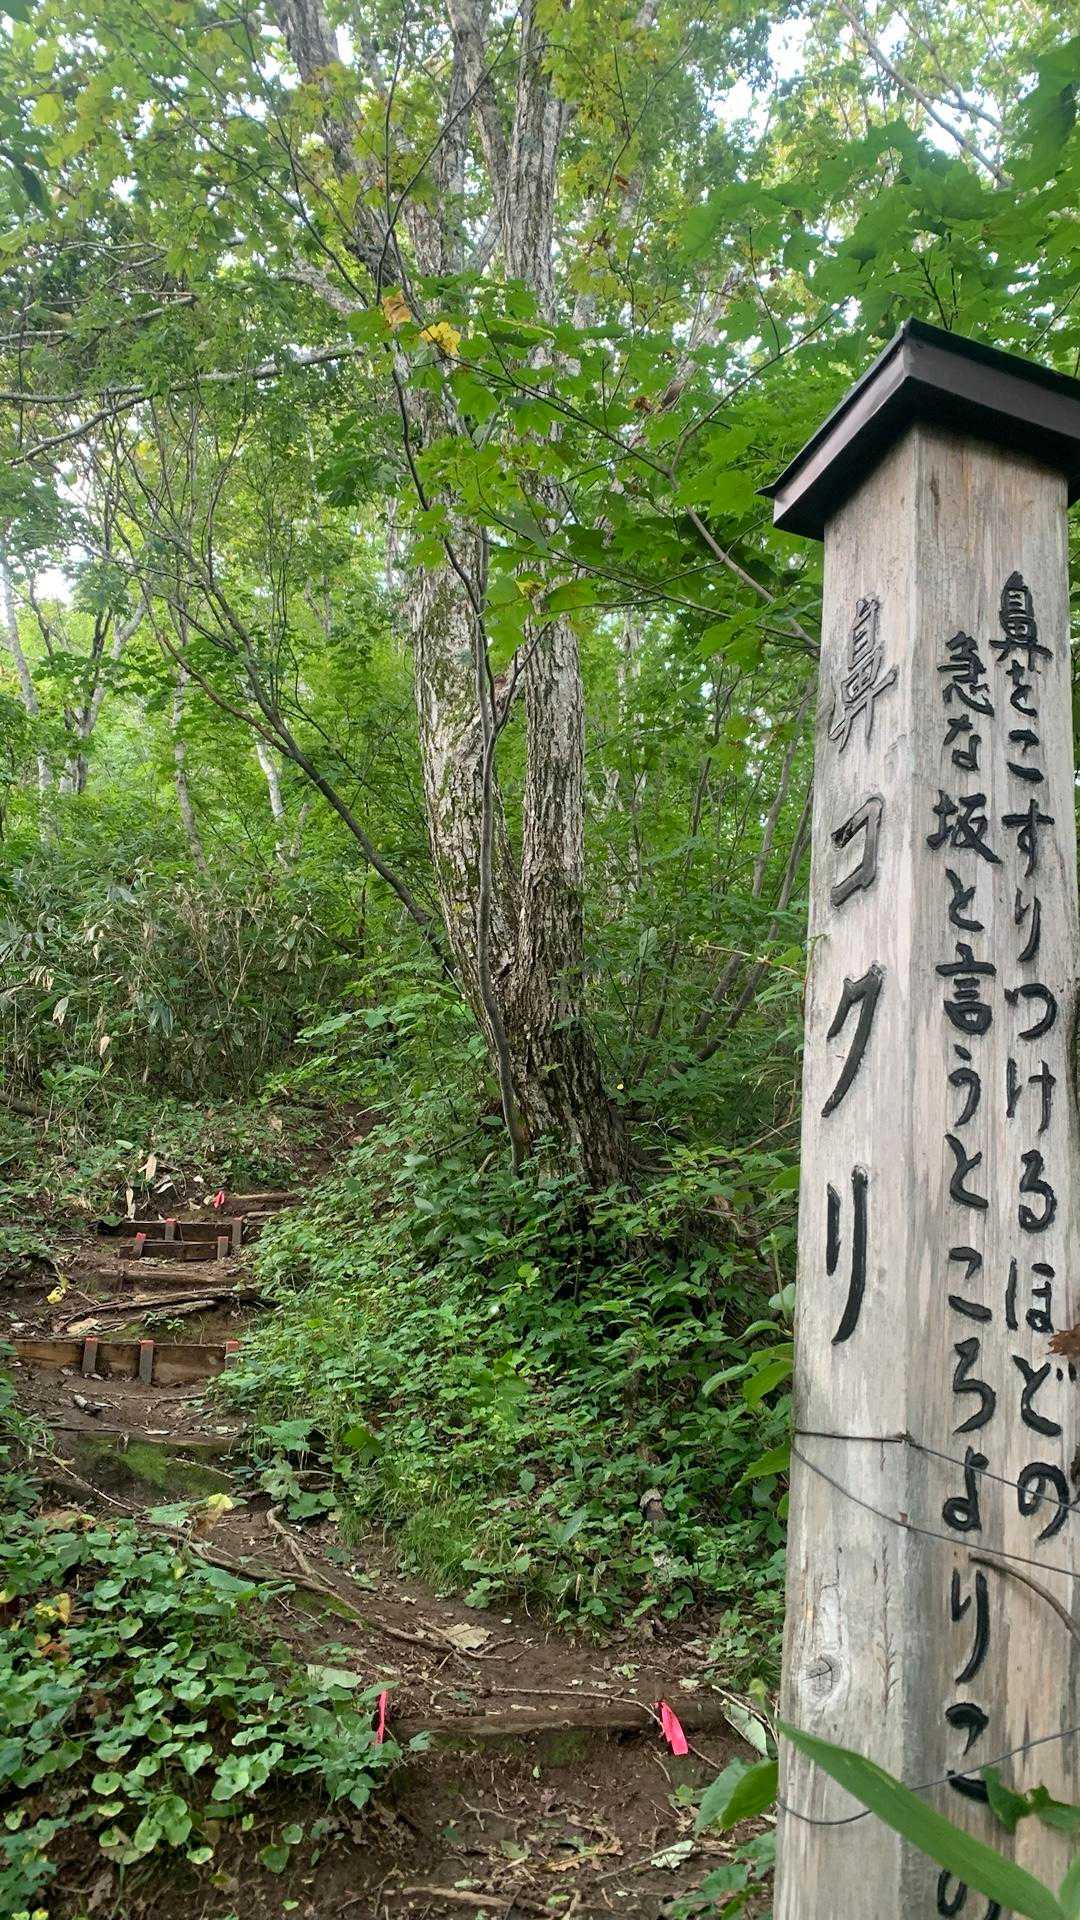 鼻コクリ
鼻をこすりつけるほどの
急な坂と言うところよりこの